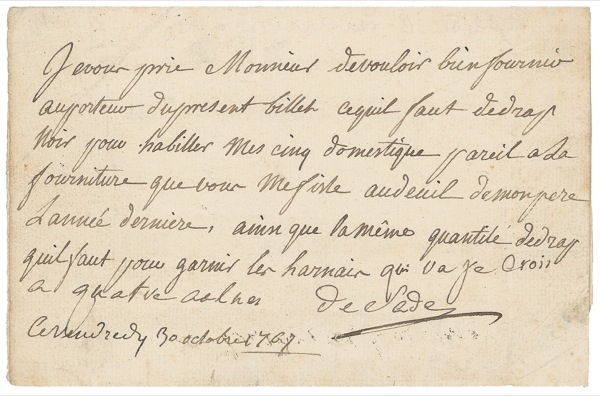 Jevous prie Monsieur devouloir bien fournir
auporteur dupresent billet cequil faut dedrap
Noir pour habiller Mes cinq domestique pareil a La
fourniture que vous Mefiste audeuil demonpere
Lanneé derniere, ainsi que la même quantité dedrap
quil faut pour garnir les harnais qui va je Crois
a quatre aulnes de Sade
Cevendredy 30 octobre 1767